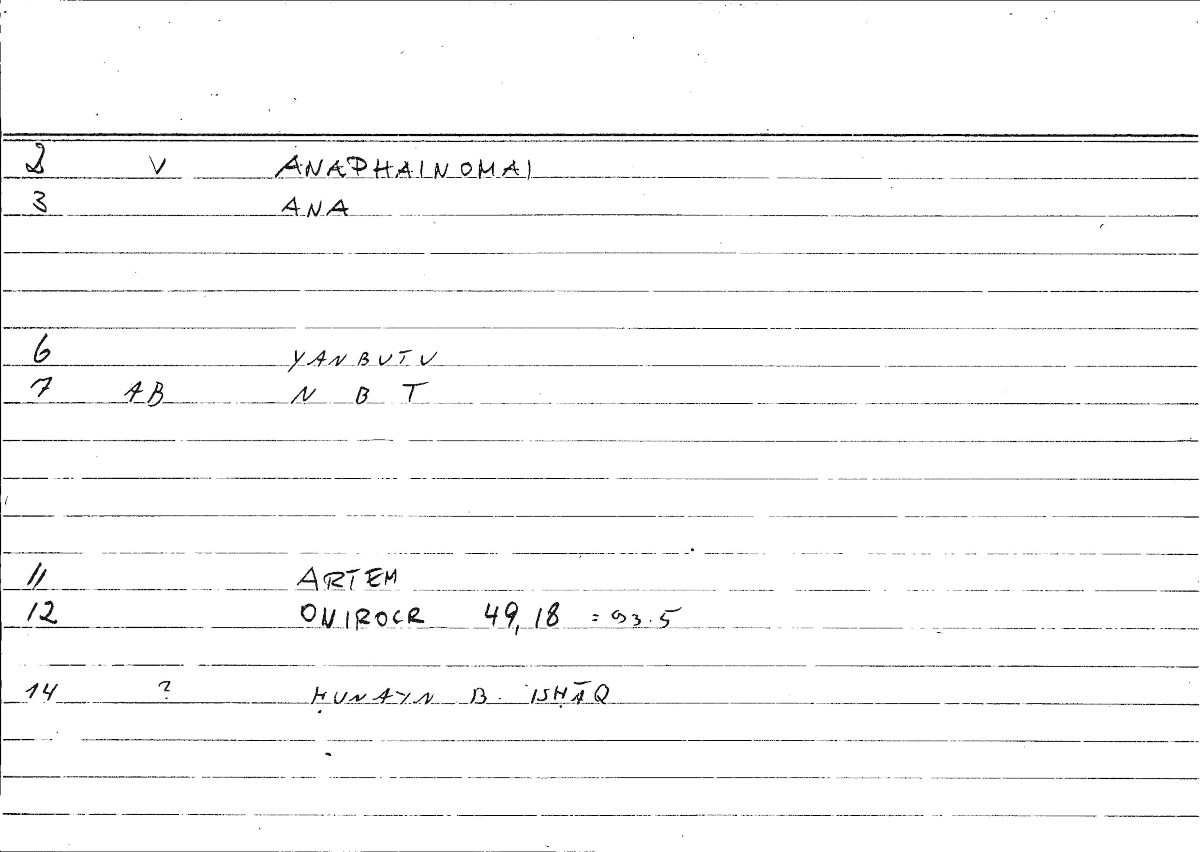 2 V ANAPHAINOMAI
3 ANA
6 YANBUTU
7 AB N B T
11 ARTEM
12 ONIROCR 49,18 = 93.5
14 ? ḤUNAYN B. ISḤĀQ